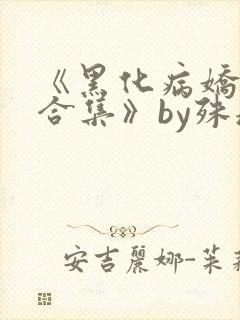 《黑化病嬌
合集》by殊
安吉麗娜-茱